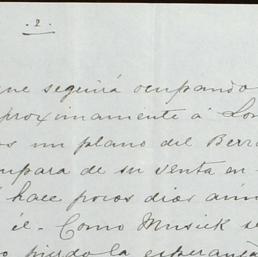 . 2 .
que seguirá ocupando
proximamente á Lon
os un plano del Berr
mpara de su venta en-
hace pocos dias
él. - Como Musick se
pierdo la esperanza